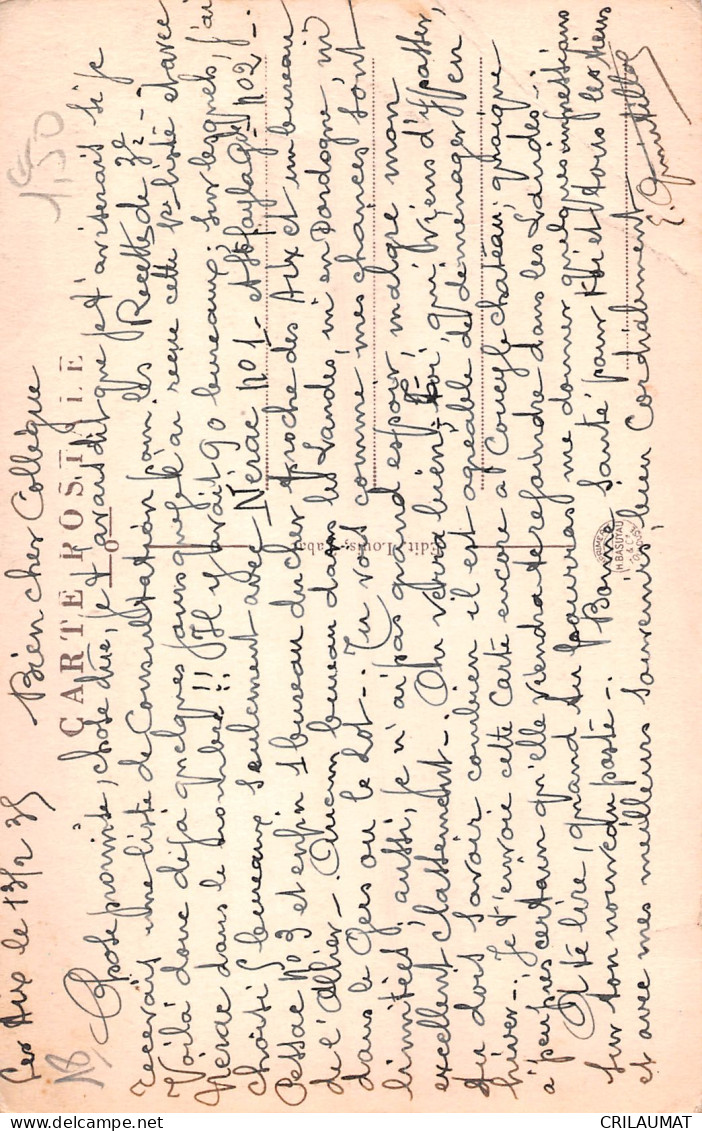 Les Aix le 13/2 35
Bien cher Collègue
CARTE POSTALE
Chose promise, chose due, je t'avais dit que je t'aviserais si je
recevais une liste de Consultation pour les Recettes de 3e -
Voilà donc déjà quelques jours que j'ai reçue cette 1re liste et avec
Nérac dans le nombre !! Il y avait 90 bureaux, sur lesquels, j'ai
choisi 5 bureaux seulement avec Nérac no 1 - et no 2 -.
Pessac no 3 et enfin 1 bureau du cher proche des Aix et un bureau
de l'Allier - Aucun bureau dans les Landes, ni en Dordogne ni
dans le Gers ou le Lot -. Tu vois comme mes chances sont
limitées, aussi, je n'ai pas grand espoir, malgré mon
excellent classement -. On verra bien. Toi, qui viens d'y passer,
tu dois savoir combien il est agréable de déménager en
hiver -. Je t'envoie cette Carte encore à Coucy le château, quoique
à peu près certain qu'elle viendra te rejoindre dans les Landes -.
A te lire, quand tu pourras me donner quelques impressions
sur ton nouveau poste -. Bonne Santé pour toi et tous les tiens
et avec mes meilleurs souvenirs, bien Cordialement
E.
1,50
18
Edit. Louis,
H. BASUYAU
& Cie
CRILAUMAT